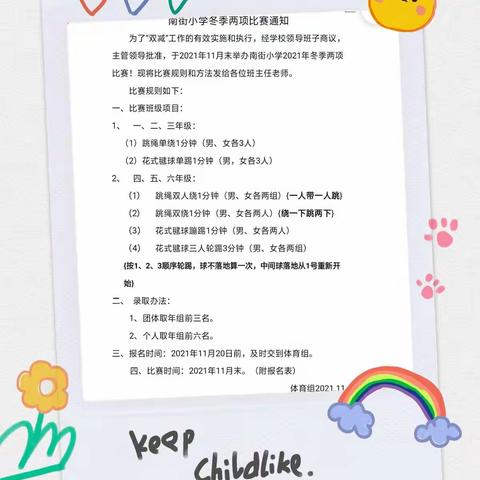 南街小学冬季两项比赛通知
为了"双减"工作的有效实施和执行，经学校领导班子商议，
主管领导批准，于2021年11月末举办南街小学2021年冬季两项
比赛！现将比赛规则和方法发给各位班主任老师。
比赛规则如下：
一、比赛班级项目：
1、 一、二、三年级：
（1）跳绳单绕1分钟（男、女各3人）
（2）花式毽球单踢1分钟（男，女各3人）
2、 四、五、六年级：
（1） 跳绳双人绕1分钟（男、女各两组）{一人带一人跳}
（2） 跳绳双绕1分钟（男、女各两人）{绕一下跳两下}
（3） 花式毽球蹦踢1分钟（男、女各两人）
（4） 花式毽球三人轮踢3分钟（男、女各两组）
{按1、2、3顺序轮踢，球不落地算一次，中间球落地从1号重新开
始}
二、 录取办法：
1、团体取年组前三名。
2、个人取年组前六名。
三、报名时间：2021年11月20日前，及时交到体育组。
四、比赛时间：2021年11月末。（附报名表）
体育组2021.11
keep
childlike.